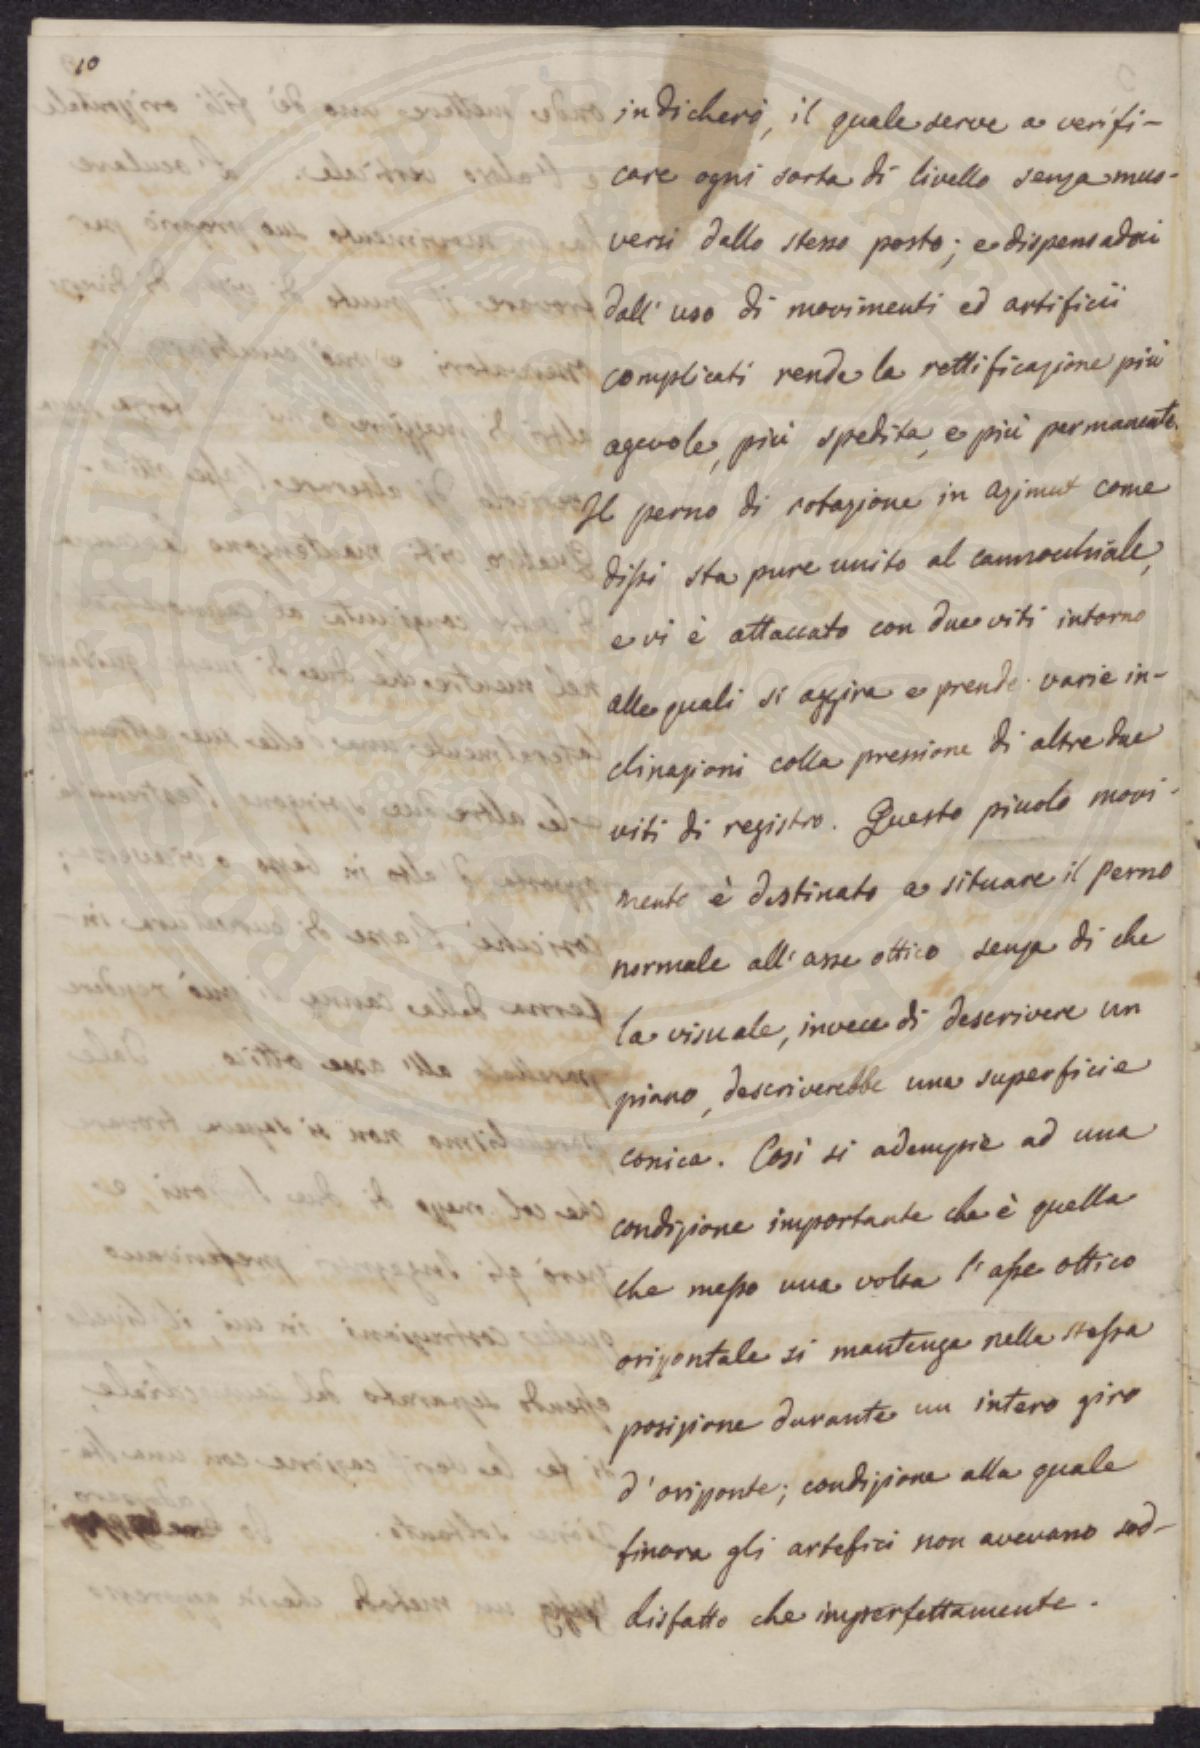 10
indicherò, il quale serve a verifi-
care ogni sorta di livello senza muo-
versi dallo stesso posto; e dispensadoci
dall'uso di movimenti ed artificii
complicati rende la rettificazione più
agevole, più spedita, e più permanente.
Il perno di rotazione in azimut come
dissi sta pure unito al cannocchiale,
e vi è attaccato con due viti intorno
alle quali si aggira e prende varie in-
clinazioni colla pressione di altre due
viti di registro. Questo piccolo movi-
mento è destinato a situare il perno
normale all'asse ottico senza di che
la visuale, invece di descrivere un
piano, descriverebbe una superficie
conica. Così si adempie ad una
condizione importante che è quella
che messo una volta l'asse ottico
orizontale si mantenga nella stessa
posizione durante un intero giro
d'orizzonte; condizione alla quale
finora gli artefici non avevano sod-
disfatto che imperfettamente.